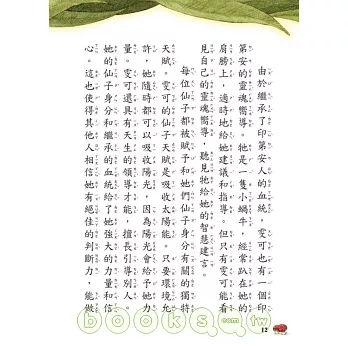 由於繼承了印第安人的血統，雯可也有一個印
第安的靈魂嚮導。牠是一隻小蝸牛，經常趴在她的
肩膀上，適時地給她建議和指導。但只有雯可能看
見自己的靈魂嚮導，聽見牠給她的智慧建言。
每位仙子都被賦予和她們仙子身分有關的獨特
天賦。雯可的仙子天賦是吸收太陽能。只要環境允
許，她隨時都可以吸收陽光，因為陽光會給予她力
量。雯可還具有天生的領導才能，擅長引導別人。
她的仙子身分和繼承的血統給了她強大的力量和信
心。這也使得其他人相信她有絕佳的判斷力，能做
12
books.com.tw